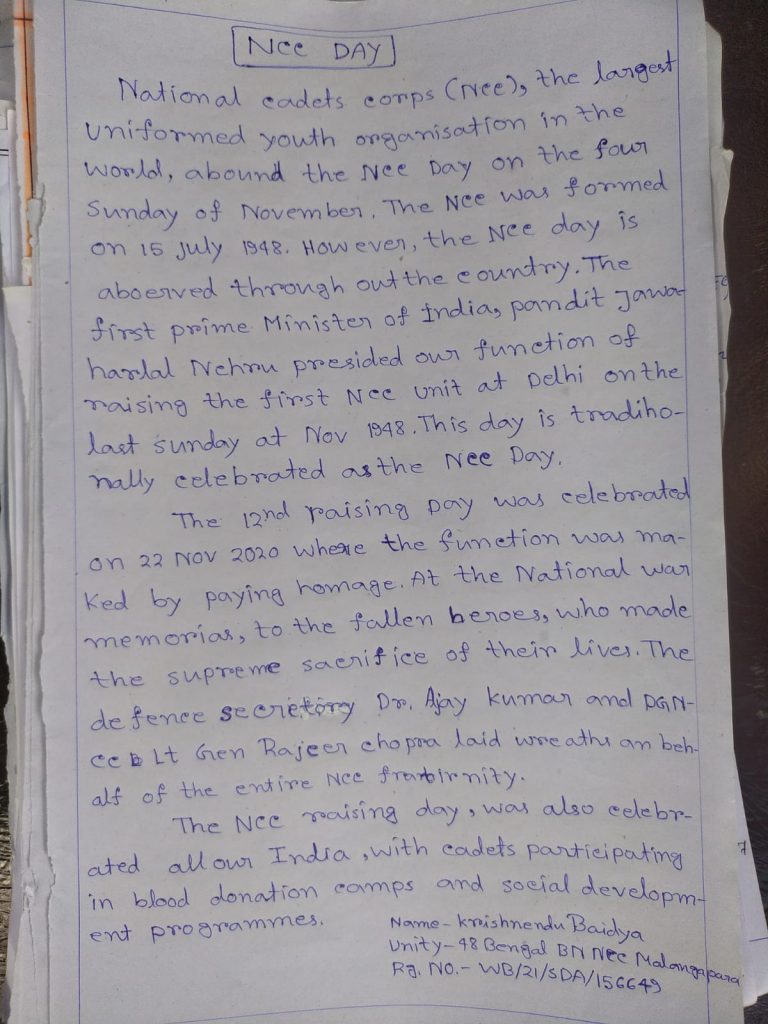 Ncc DAY
National cadets corps (Ncc), the largest
uniformed youth organisation in the
world, abound the Ncc Day on the four
Sunday of November. The Ncc was formed
on 15 July 1948. However, the Ncc day is
aboerved through out the country. The
first prime Minister of India, pandit Jawa-
harlal Nehru presided our function of
raising the first Ncc unit at Delhi on the
last sunday at Nov 1948. This day is tradiho-
nally celebrated as the Ncc Day.
The 12nd raising Day was celebrated
on 22 Nov 2020 where the function was ma-
ked by paying homage. At the National war
memorias, to the fallen beroes, who made
the supreme sacrifice of their lives. The
defence secretory Dr. Ajay kumar and DGN-
cc Lt Gen Rajeer chopra laid wreaths an beh-
alf of the entire Ncc
The Ncc raising day, was also celebr-
ated all our India, with cadets participating
in blood donation camps and social developm-
ent programmes.
Name - Krishnendu Baidya
Unity - 48 Bengal BN Ncc Malangapara
Rg. No. - WB/21/SDA/156649